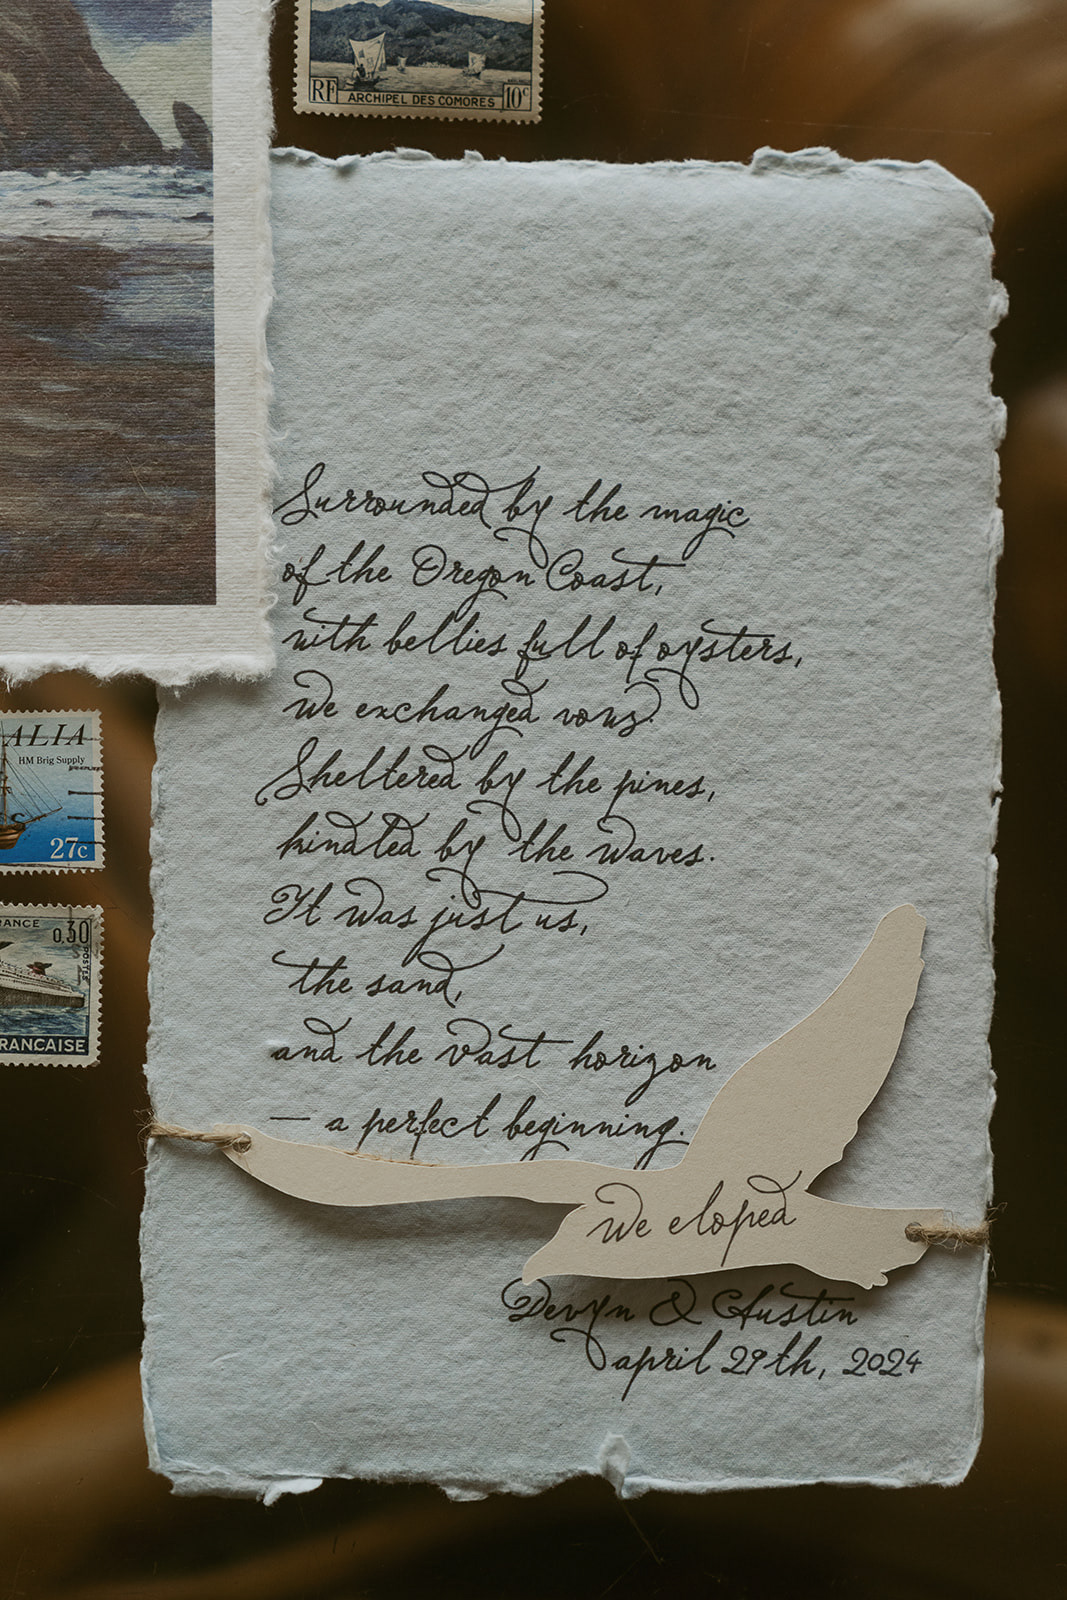 RF ARCHIPEL DES COMORES 10c
Surrounded by the magic
of the Oregon Coast,
with bellies full of oysters,
we exchanged vows.
Sheltered by the pines,
kindled by the waves.
It was just us,
the sand,
and the vast horizon
— a perfect beginning.
We eloped
Devyn & Austin
april 29th, 2024
ALIA
HM Brig Supply
27c
ANCE
0,30
POSTES
RANCAISE